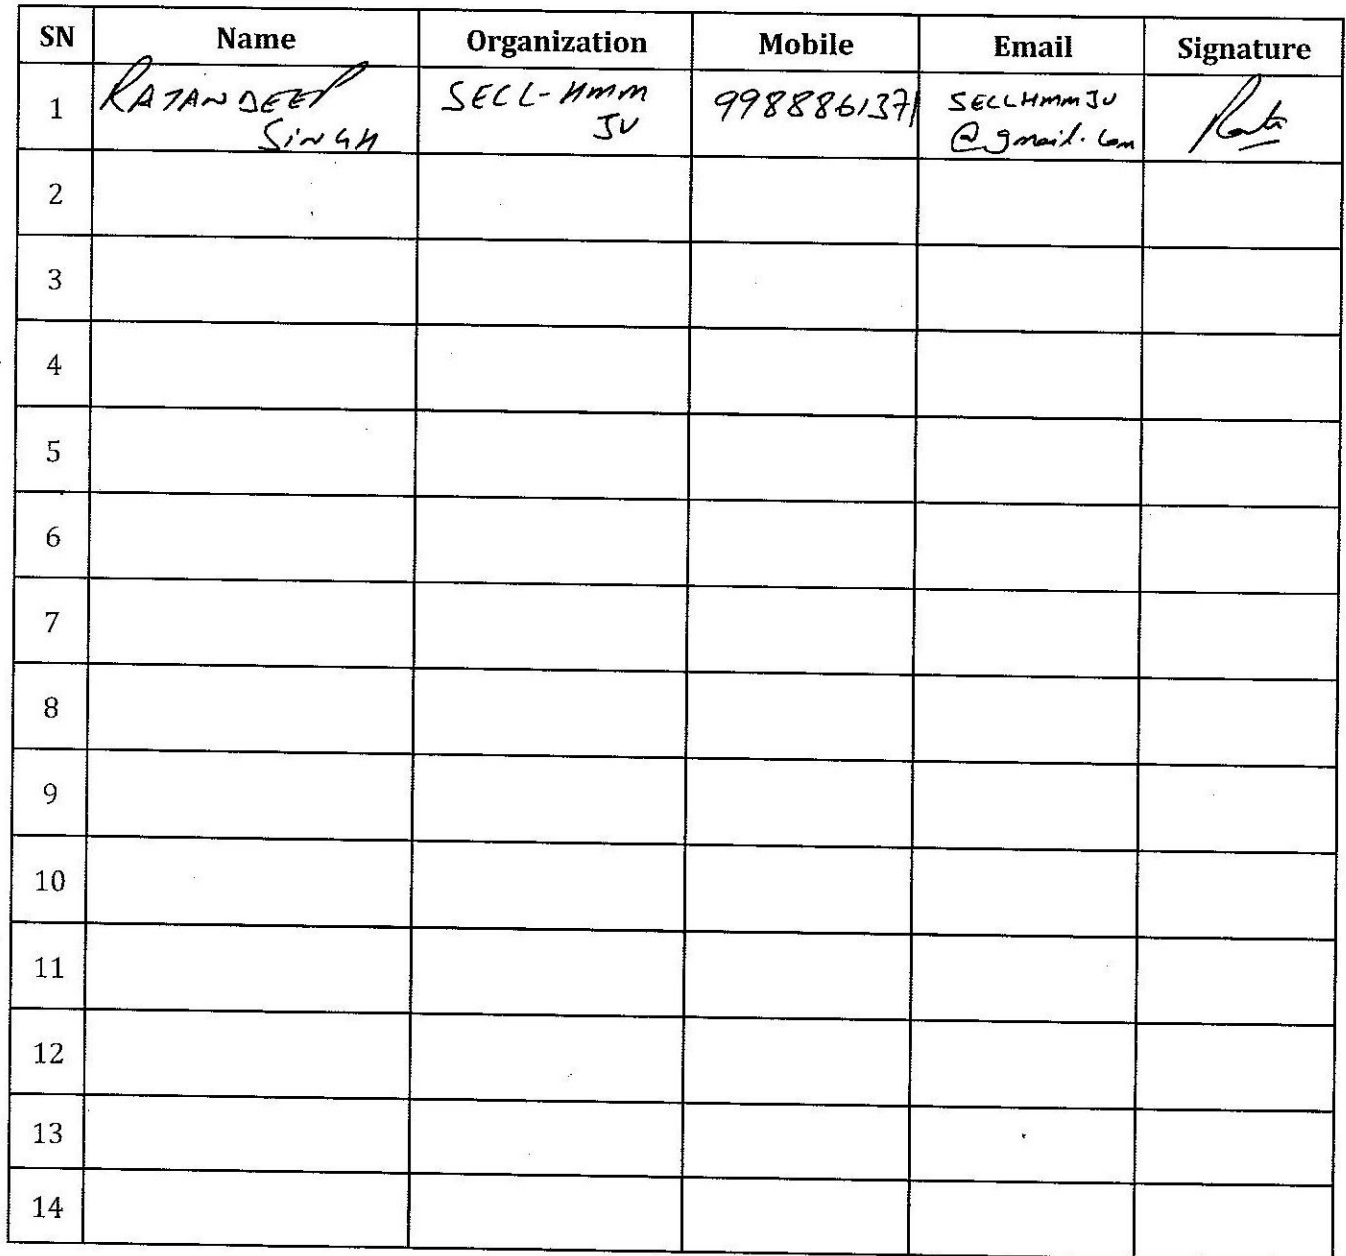 SN Name Organization Mobile Email Signature
1 RATANDEEP SECL-HMM 9988861371 SECLHMMJV
SINGH JV @gmail.com
2
3
4
5
6
7
8
9
10
11
12
13
14